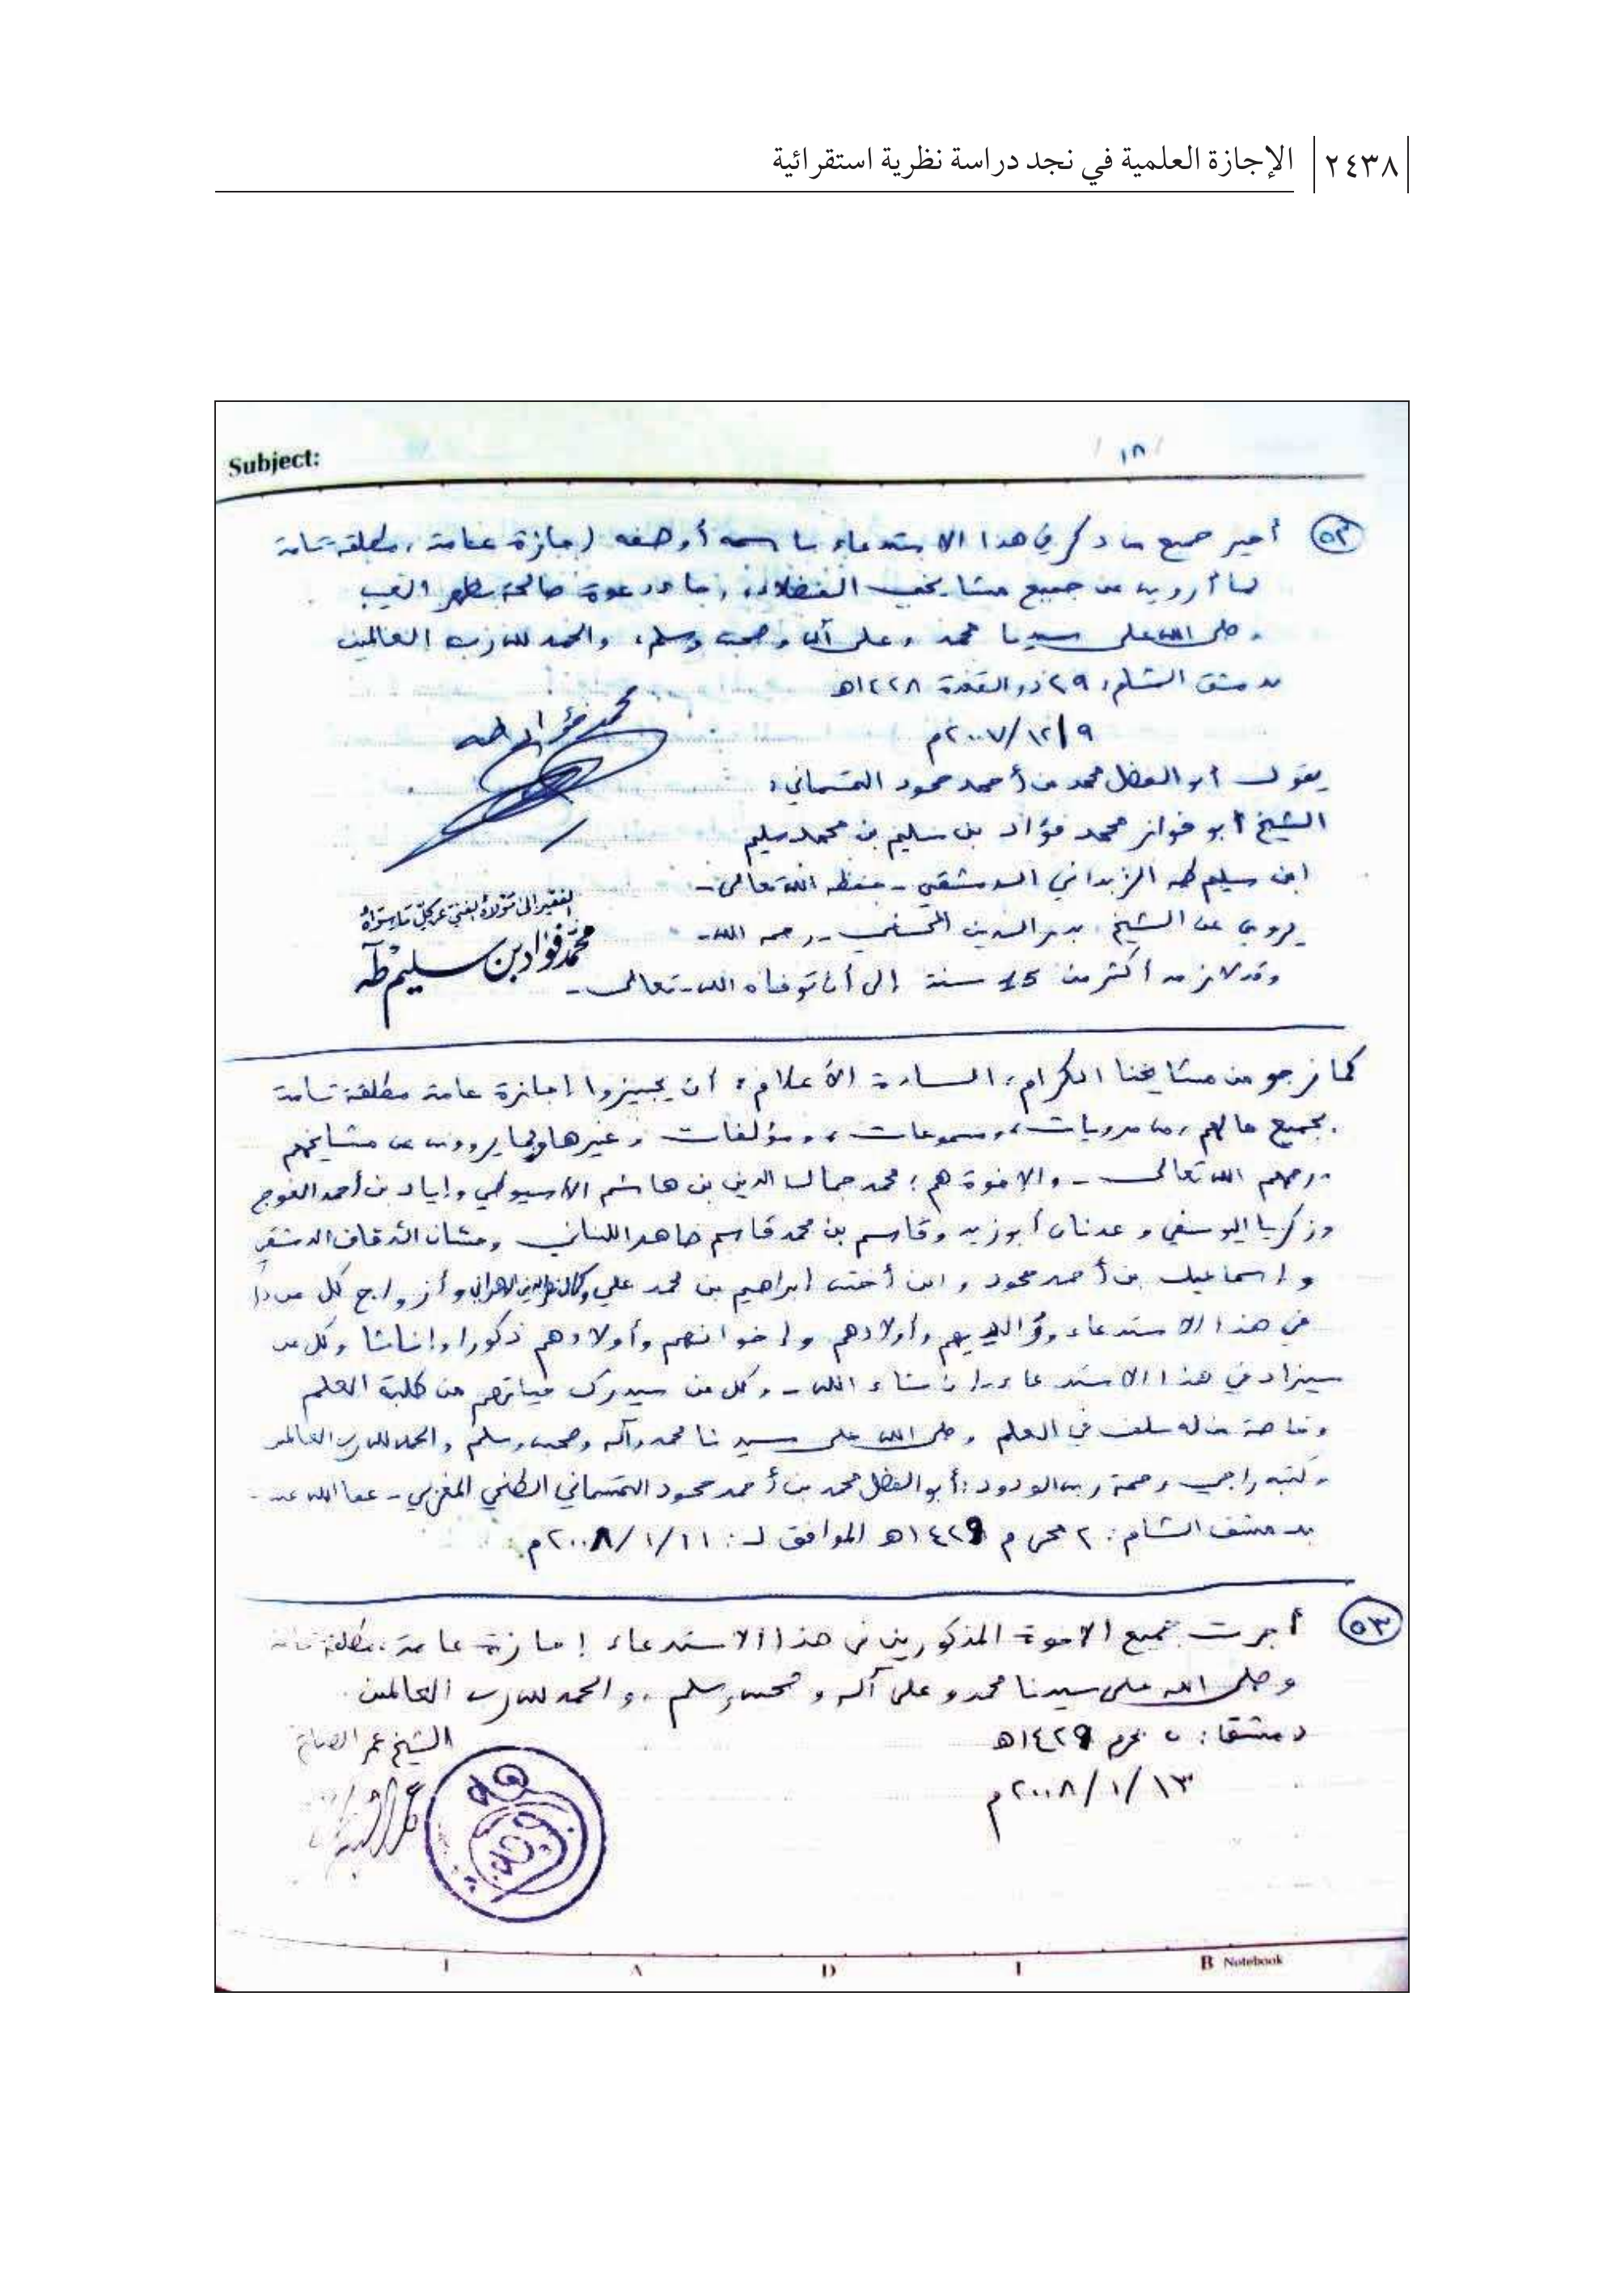 ٢٤٣٨ الإجازة العلمية في نجد دراسة نظرية استقرائية
Subject:
/ ١٨ /
٥٢ أجيز جميع من ذكر في هذا الاستدعاء باسمه أو صفه إجازة عامة، مطلقة تامة
بما أرويه عن جميع مشايخي الفضلاء، راجيا دعوة صالحة بظهر الغيب
وصلى الله على سيدنا محمد وعلى آله وصحبه وسلم، والحمد لله رب العالمين
بدمشق الشام، ٢٩ ذو القعدة ١٤٢٨هـ
٢٠٠٧/١٢/٩م
محمد فؤاد طه
يقول أبو الفضل محمد بن أحمد محمود التمسماني:
الشيخ أبو فواز محمد فؤاد بن سليم بن محمد سليم
ابن سليم طه الزبداني الدمشقي - حفظه الله تعالى -
يروي عن الشيخ بدر الدين الحسني - رحمه الله -
وقد لازمه أكثر من 15 سنة إلى أن توفاه الله - تعالى -
الفقير إلى مولاه الغني عن كل ما سواه
محمد فؤاد بن سليم طه
كما نرجو من مشايخنا الكرام، السادة الأعلام: أن يجيزوا إجازة عامة مطلقة تامة
بجميع ما لهم من مرويات، ومسموعات، ومؤلفات وغيرها وبما يروون عن مشايخهم
رحمهم الله تعالى - والإخوة هم: محمد جمال الدين بن هاشم الأسيوطي وإياد بن أحمد الغوج
وزكريا اليوسفي وعدنان أبو زيد وقاسم بن محمد قاسم ضاهر اللبناني الدمشقي
وإسماعيل بن أحمد محمود وابن أخته إبراهيم بن محمد علي وأزواج كل من
في هذا الاستدعاء ووالديهم وأولادهم وإخوانهم وأولادهم ذكورا وإناثا وكل من
سيزاد في هذا الاستدعاء - إن شاء الله - وكل من سيدرك حياتهم من طلبة العلم
وخاصة من له سلف في العلم وصلى الله على سيدنا محمد وآله وصحبه وسلم والحمد لله رب العالمين
وكتبه راجي رحمة رب الودود: أبو الفضل محمد بن أحمد محمود التمسماني الطنجي المغربي - عفا الله عنه -
بدمشق الشام: ٢ محرم ١٤٢٩هـ الموافق لـ: ٢٠٠٨/١/١١م
٥٣ أجزت جميع الإخوة المذكورين في هذا الاستدعاء إجازة عامة، مطلقة تامة
وصلى الله على سيدنا محمد وعلى آله وصحبه وسلم، والحمد لله رب العالمين.
دمشق: ٥ محرم ١٤٢٩هـ
٢٠٠٨/١/١٣م
الشيخ عمر
I A D I B Notebook